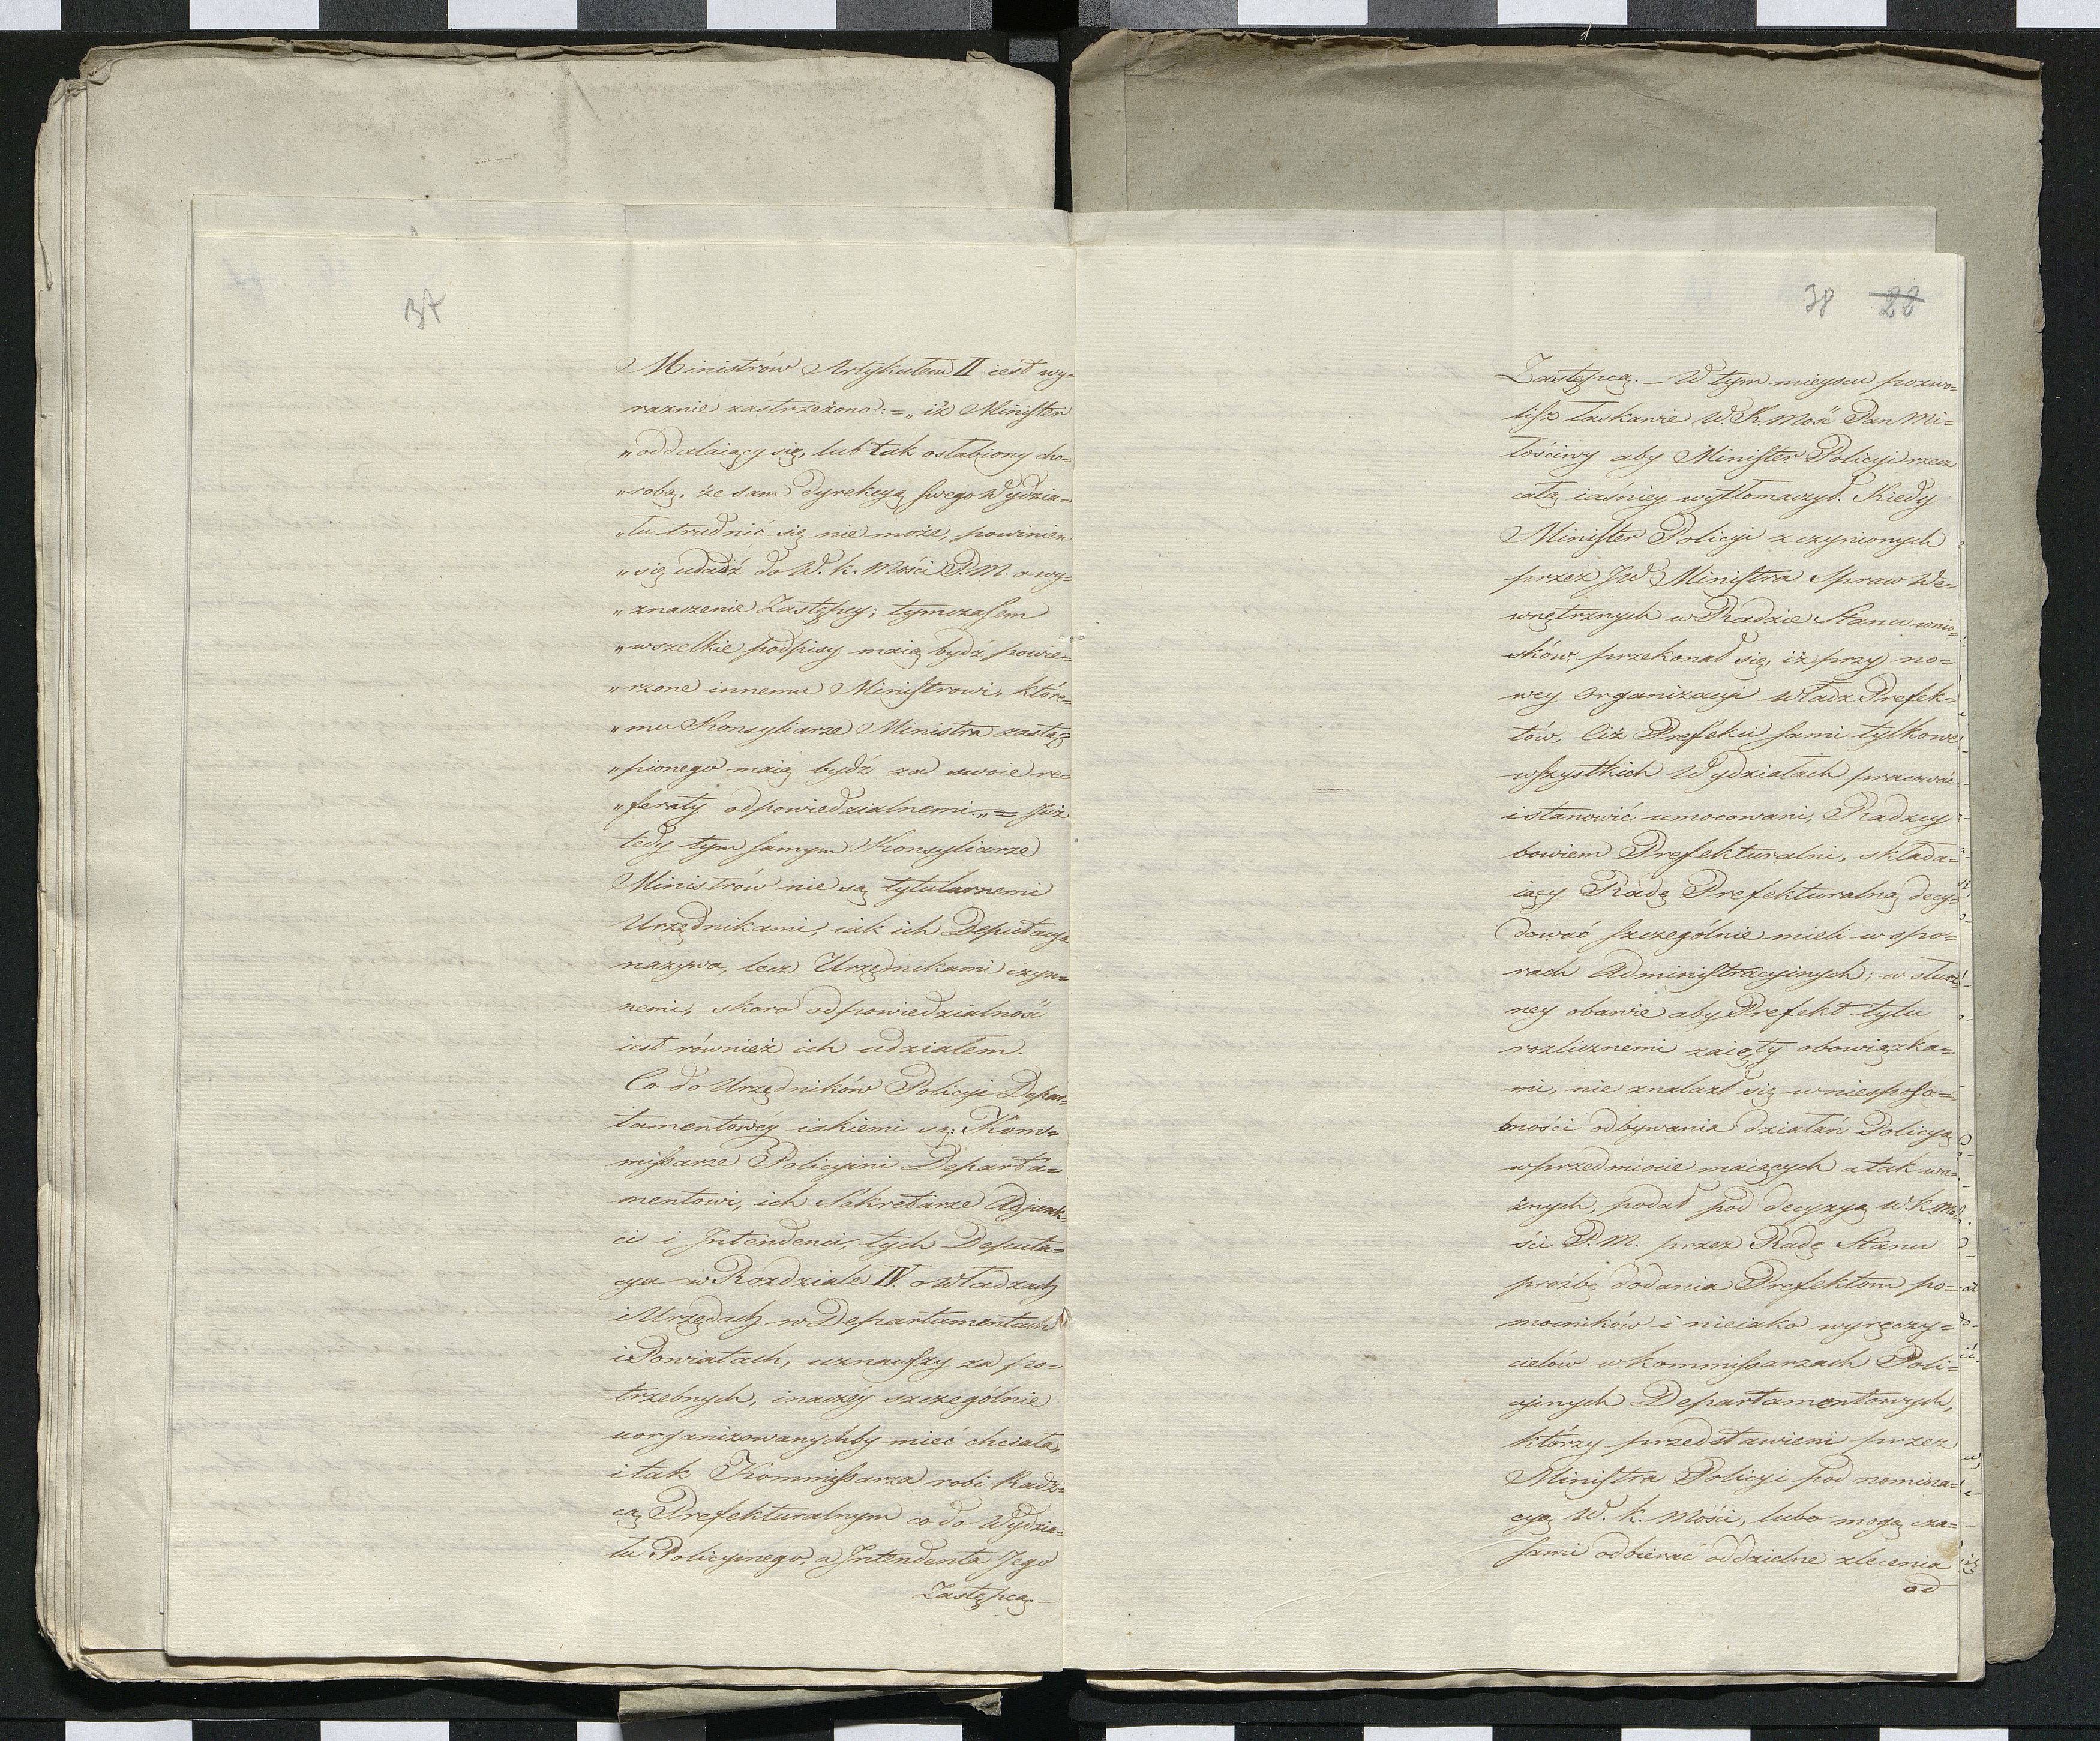 37
Ministrów Artykułem II iest wy-
raznie zastrzożono: = „iż Minister
„oddalaiący się, lub tak osłabiony cho-
„robą, że sam Dyrekcyą swego Wydzia-
„łu trudnić się nie może, powinien
„się udadź do W. K. Mości P. M. o wy-
„znaczenie Zastępcy; tymczasem
„wszelkie podpisy maią bydź powie-
„rzone innemu Ministrowi, które-
„mu Konsyliarze Ministra zastą-
„pionego maią bydź za swoie re-
„feraty odpowiedzialnemi.„ = Już
tedy tym samym Konsyliarze
Ministrów nie są tytularnemi
Urzędnikami, iak ich Deputacya
nazywa, lecz Urzędnikami czyn-
nemi, skoro odpowiedzialność
iest również ich udziałem.
Co do Urzędników Policyi Depar-
tamentowéy iakiemi są: Kom-
missarze Policyini Departa-
mentowi, ich Sekretarze Adjunk-
ci i Intendenci, tych Deputa-
cya w Rozdziale IV. o Władzach
i Urzędach w Departamentach
i Powiatach, uznawszy za po-
trzebnych, inaczéy szczególnie
uorganizowanychby mieć chciała,
i tak Kommissarza robi Radz-
cą Prefekturalnym co do Wydzia-
łu Policyinego, a Intendenta Jego
Zastępcą. —
38 28
Zastępcą. — W tym mieyscu pozwo-
lisz łaskawie W. K. Mość Pan Mi-
łościwy aby Minister Policyi rzecz
całą iaśniey wytłomaczył. Kiedy
Minister Policyi z czynionych
przez JW Ministra Spraw We-
wnętrznych w Radzie Stanu wnio-
sków, przekonał się, iż przy no-
wey Organizacyi Władz Prefek-
tów, ciż Prefekci sami tylko we
wszystkich Wydziałach pracować
i stanowić umocowani, Radzcy
bowiem Prefekturalni, składa-
iący Radę Prefekturalną decy-
dować szczególnie mieli w spo-
rach Administracyinych; w słusz-
ney obawie aby Prefekt tylu
rozlicznemi zaięty obowiązka-
mi, nie znalazł się w nieposo-
bności odbywania działań Policyą
w przedmiocie maiących a tak wa-
żnych, podał pod decyzyą W. K. Mo-
ści P. M. przez Radę Stanu
prożbę dodania Prefektom po-
mocników i nieiako wyręczy-
cielów w Kommissarzach Poli-
cyinych Departamentowych,
którzy przedstawieni przez
Ministra Policyi pod nomina-
cyą W. K. Mości, lubo mogą cza-
sami odbierać oddzielne zlecenia
od